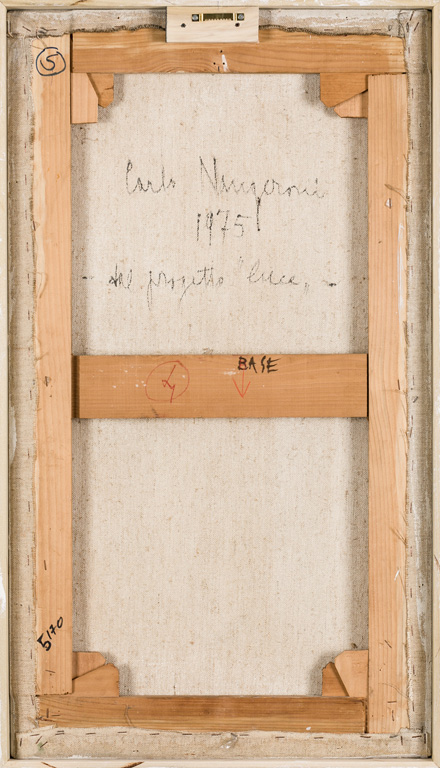 5
Carlo Nangeroni
1975
- dal progetto "luce" -
BASE
5170